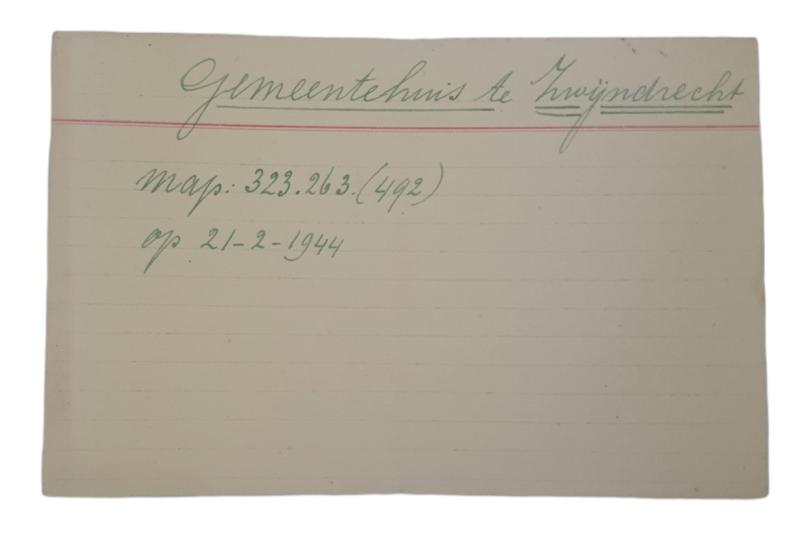 Gemeentehuis te Zwijndrecht
map: 323.263.(492)
op 21-2-1944